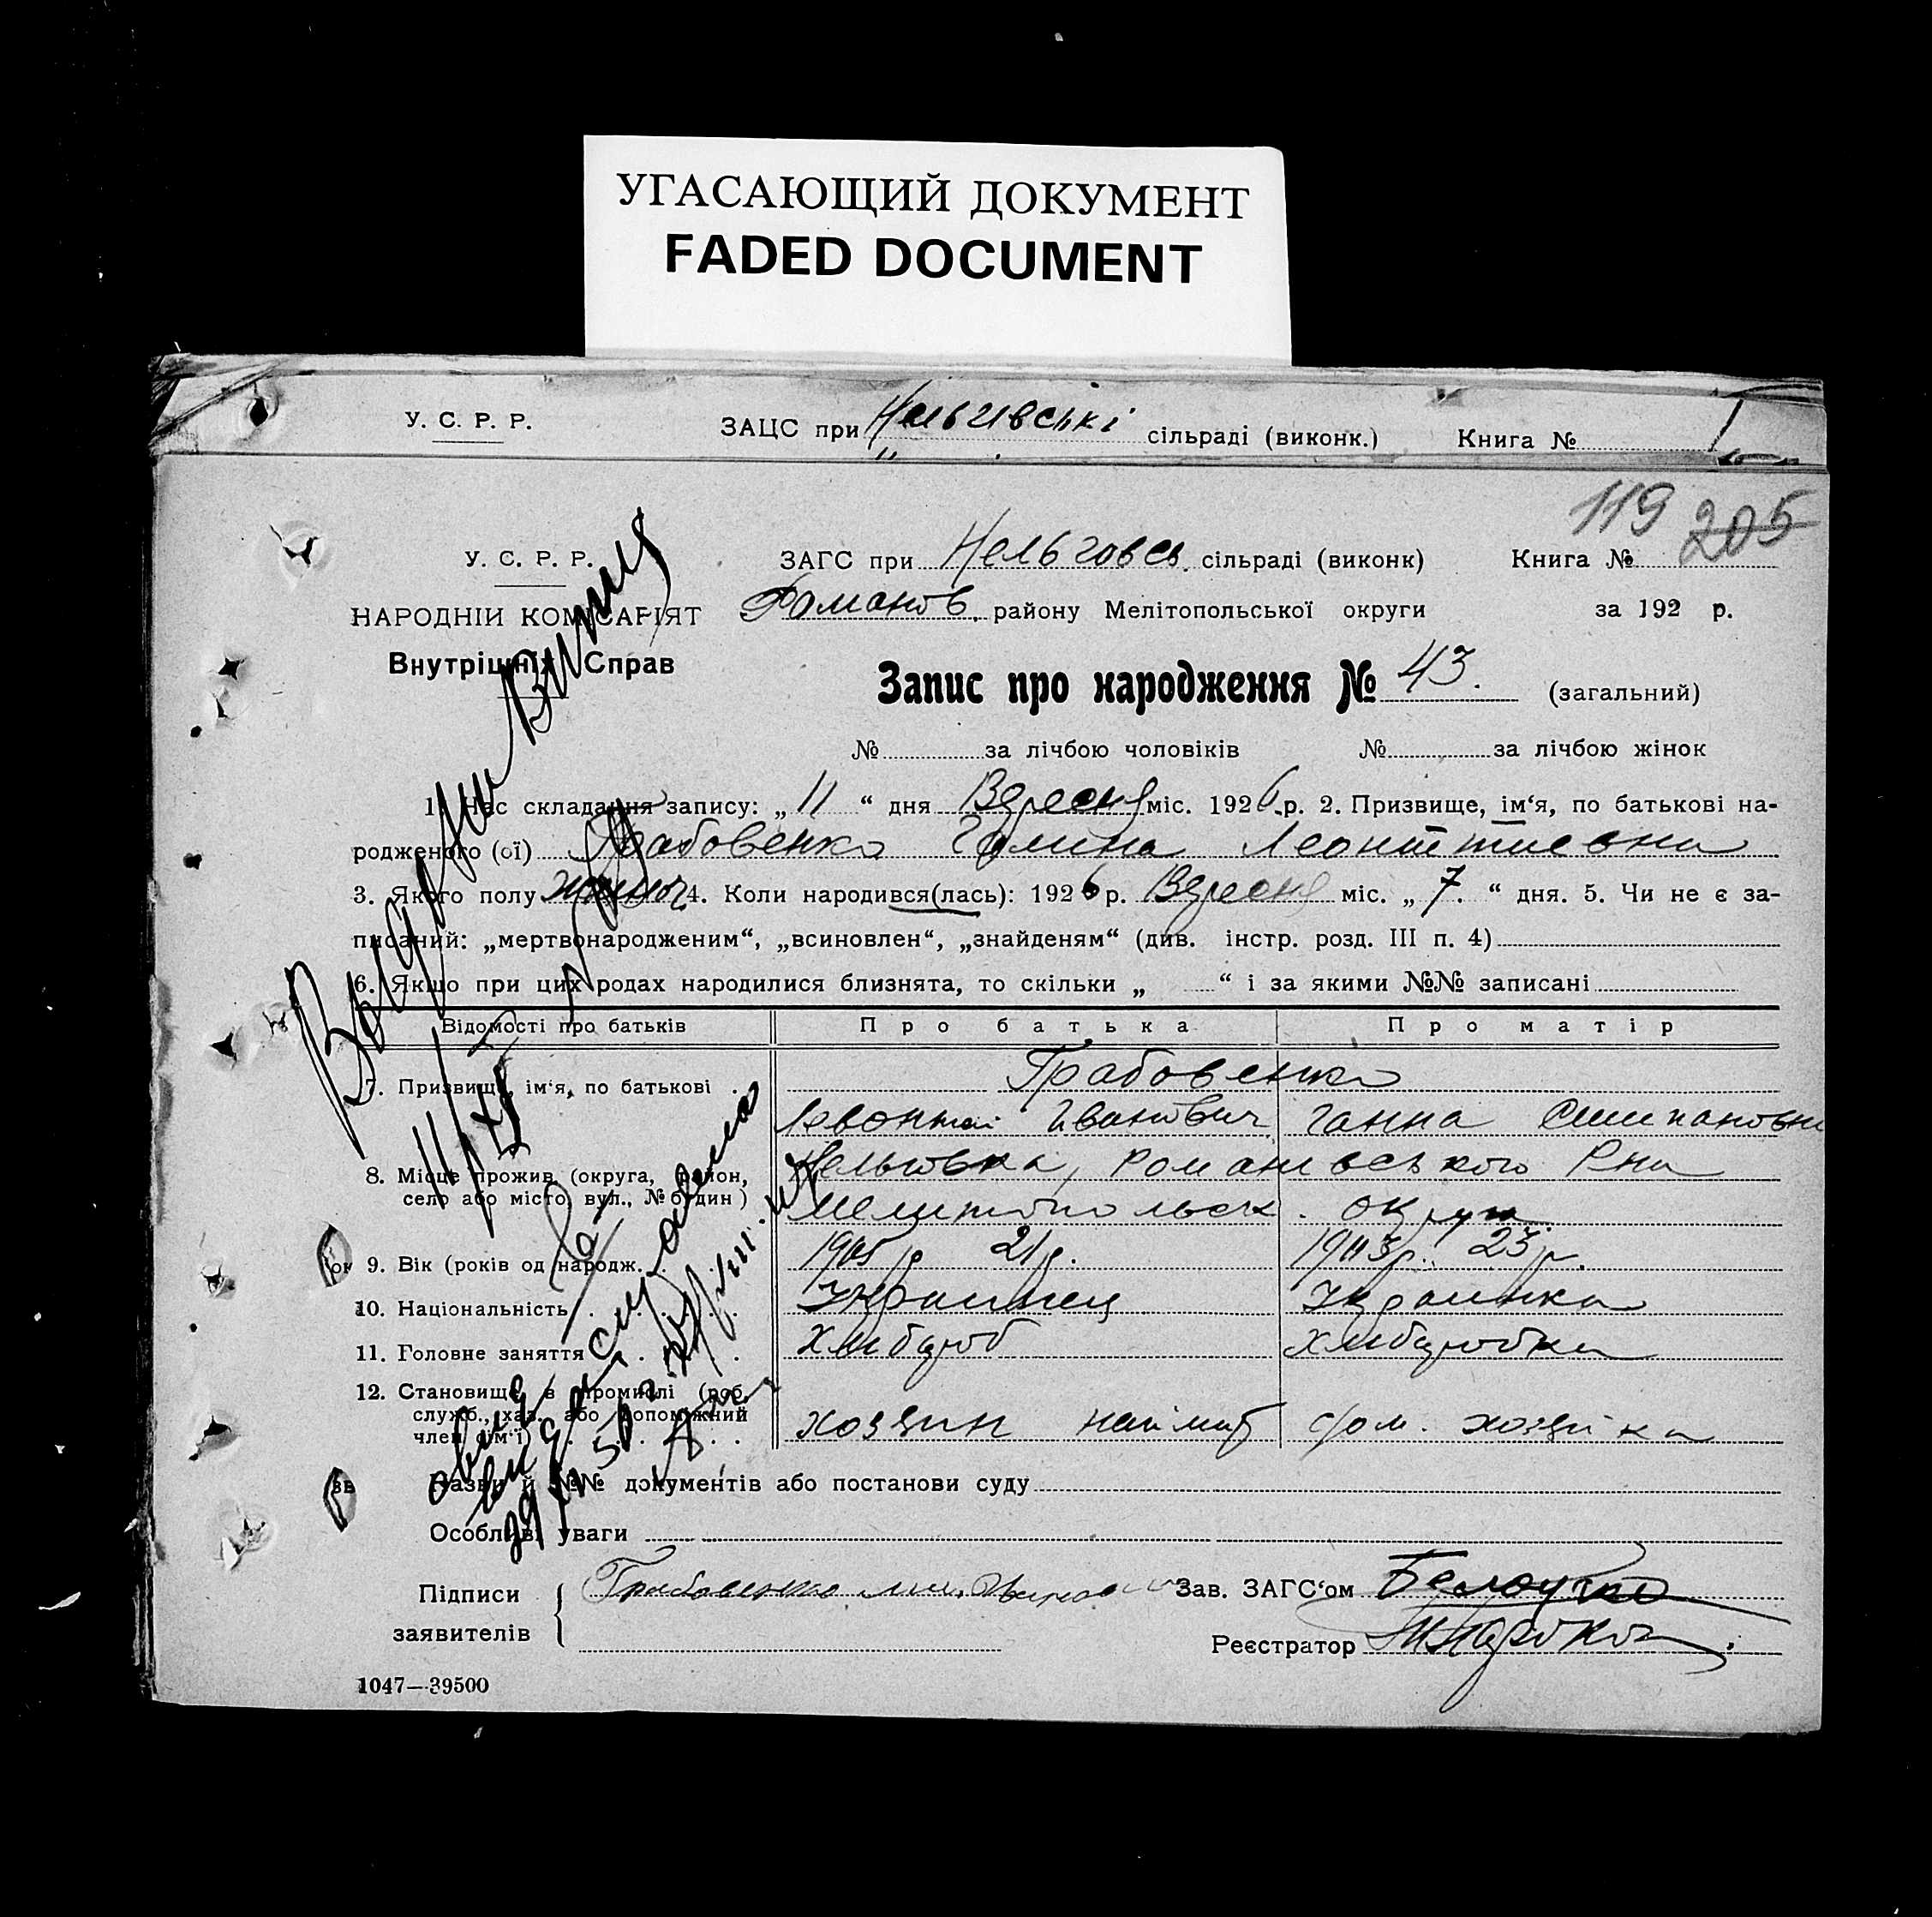 УГАСАЮЩИЙ ДОКУМЕНТ
FADED DOCUMENT
У. С. Р. Р. ЗАЦС при Нельгивські сільраді (виконк.) Книга № 1
119 205
У. С. Р. Р. ЗАГС при Нельговсь. сільраді (виконк) Книга №
НАРОДНІИ КОМІСАРІЯТ Романов. району Мелітопольської округи за 192 р.
Внутрішніх Справ
Запис про народження № 43. (загальний)
№ за лічбою чоловіків № за лічбою жінок
1. Час складання запису: „ 11 “ дня Вересня міс. 1926 р. 2. Призвище, ім‘я, по батькові на-
родженого (ої) Грабовенко Галина Леонттиевна
3. Якого полу жиноч 4. Коли народився(лась): 1926 р. Вересня міс. „ 7. “ дня. 5. Чи не є за-
писаний: „мертвонародженим“, „всиновлен“, „знайденям“ (див. інстр. розд. III п. 4)
6. Якщо при цих родах народилися близнята, то скільки „ “ і за якими №№ записані
Відомості про батьків Про батька Про матір
7. Призвище, ім‘я, по батькові . Грабовенко
Левонтий Иванович Ганна Степановна
8. Місце прожив. (округа, район, Нельговка, Романивського Рна
село або місто, вул., № будин ) Мелитопольск. округи
9. Вік (років од народж. 1905 р 21 р. 1903 р. 23 р.
10. Національність Украинец Украинка
11. Головне заняття Хлибороб Хлиборобка
12. Становище в промислі (роб.
служб., хаз. або допоміжний хозяин дом. хозяйка
член сім‘ї)
Назви й №№ документів або постанови суду
Особливі уваги
Підписи Грабовенко Зав. ЗАГС‘ом
заявителів Реєстратор
1047—39500